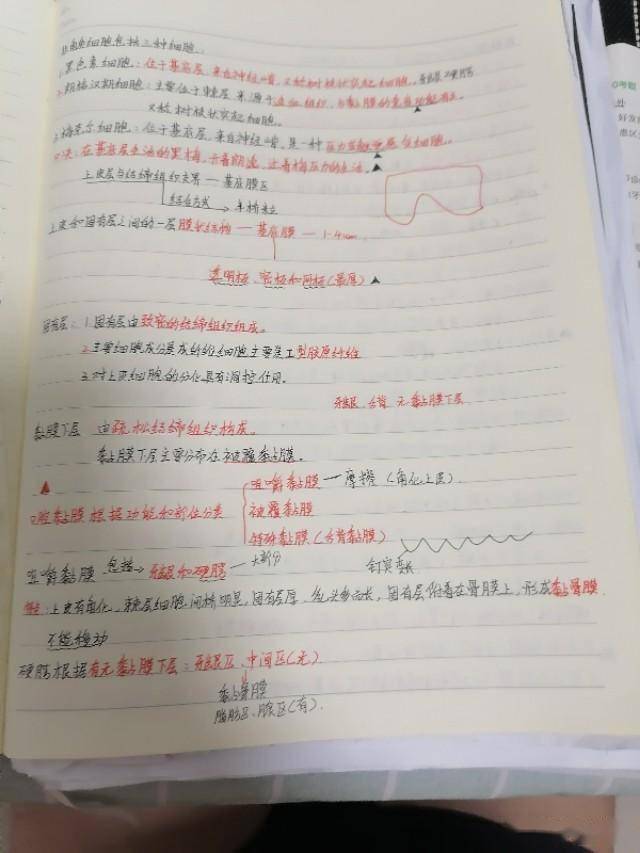 非角质细胞包括三种细胞:
1.黑色素细胞:位于基底层,来自神经嵴,又称树枝状突起细胞。牙龈、硬腭
2.朗格汉斯细胞:主要位于棘层,来源于造血组织,与黏膜的免疫功能有关。
又称树枝状突起细胞。
3.梅克尔细胞:位于基底层,来自神经嵴,是一种压力或触觉感受细胞。
口决:在基底层生活的黑梅,
上皮层与结缔组织交界—基底膜区
结合方式→半桥粒
上皮和固有层之间的一层膜状结构—基底膜—1-4um
透明板、密板和网板(最厚)▲
固有层:1.固有层由致密的结缔组织组成。
2.主要细胞成分是成纤维细胞,主要是I型胶原纤维
3.对上皮细胞的分化具有调控作用。
牙龈、舌背 无黏膜下层
黏膜下层 由疏松结缔组织构成。
黏膜下层主要分布在被覆黏膜。
▲
口腔黏膜根据功能和部位分类
咀嚼黏膜—摩擦(角化上皮)
被覆黏膜
特殊黏膜(舌背黏膜)
咀嚼黏膜 包括→牙龈和硬腭—大部分
钉突
特点:上皮有角化,棘层细胞间桥明显,固有层厚,乳头多而长,固有层附着在骨膜上,形成黏骨膜
不能移动
硬腭根据有无黏膜下层:牙龈区、中间区(无)
黏骨膜
脂肪区、腺区(有).